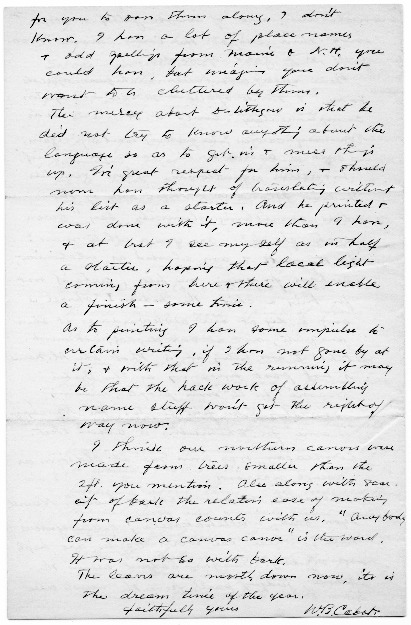 for you to run them along, I don't
know. I have a lot of place names
& odd spellings from Maine & N.H. you
could have, but imagine you don't
want to be cluttered by them.
The mercy about DeLithgow is that he
did not try to know anything about the
language so as to get in & mess things
up. I've great respect for him, & should
never have thought of translating without
his list as a starter. And he printed &
was done with it, more than I have,
& at best I see myself as in half
a starter, hoping that local light
coming from here & there will enable
a finish — some time.
As to printing I have some impulse to
certain writing, if I have not gone by at
it, & with that in the running it may
be that the hack work of assembling
name stuff won't get the right of
way now.
I think our northern canoes were
made from trees smaller than the
2ft. you mention. Also along with
of bark the relative ease of making
from canvas counts with us. "Anybody
can make a canvas canoe" is the word.
It was not so with bark.
The leaves are mostly down now, it is
the dream time of the year.
Faithfully yours
W.B. Cabot.